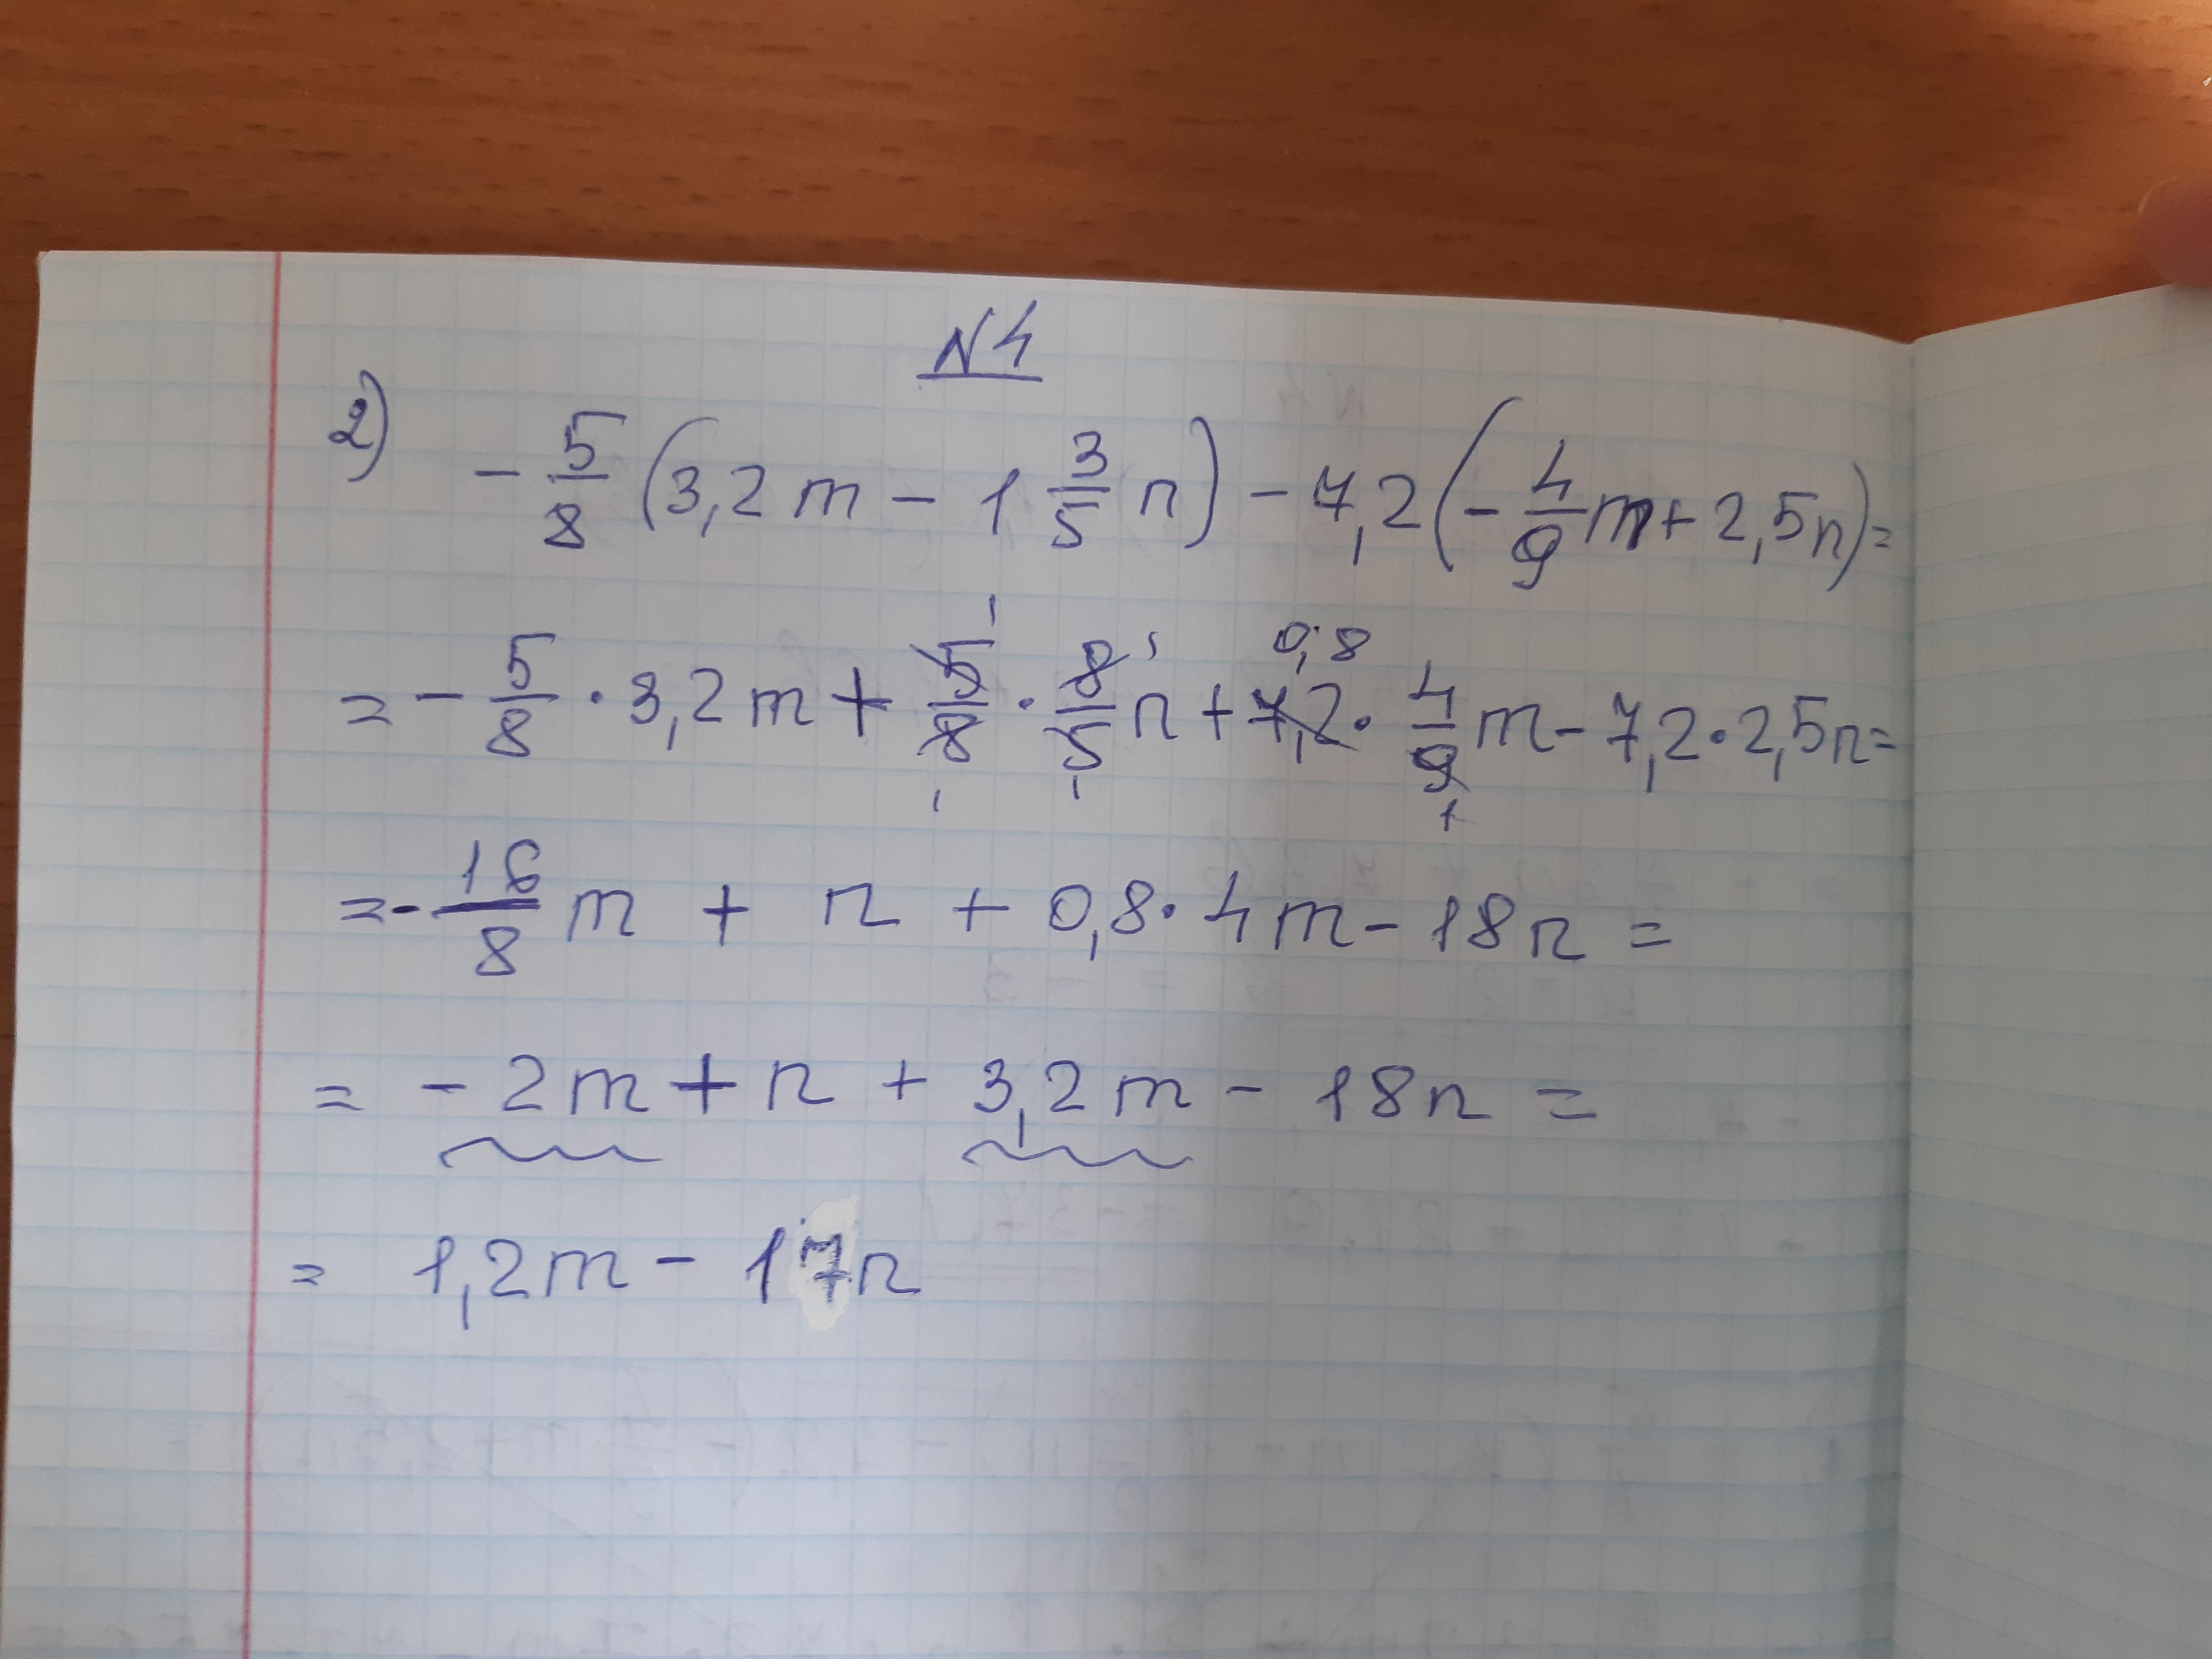 N4
2) - 5/8 (3,2m - 1 3/5 n) - 7,2 (- 4/9 m + 2,5n) =
= - 5/8 · 3,2m + 5/8 · 8/5 n + 7,2 · 4/9 m - 7,2 · 2,5n =
= - 16/8 m + n + 0,8 · 4m - 18n =
= - 2m + n + 3,2m - 18n =
= 1,2m - 17n